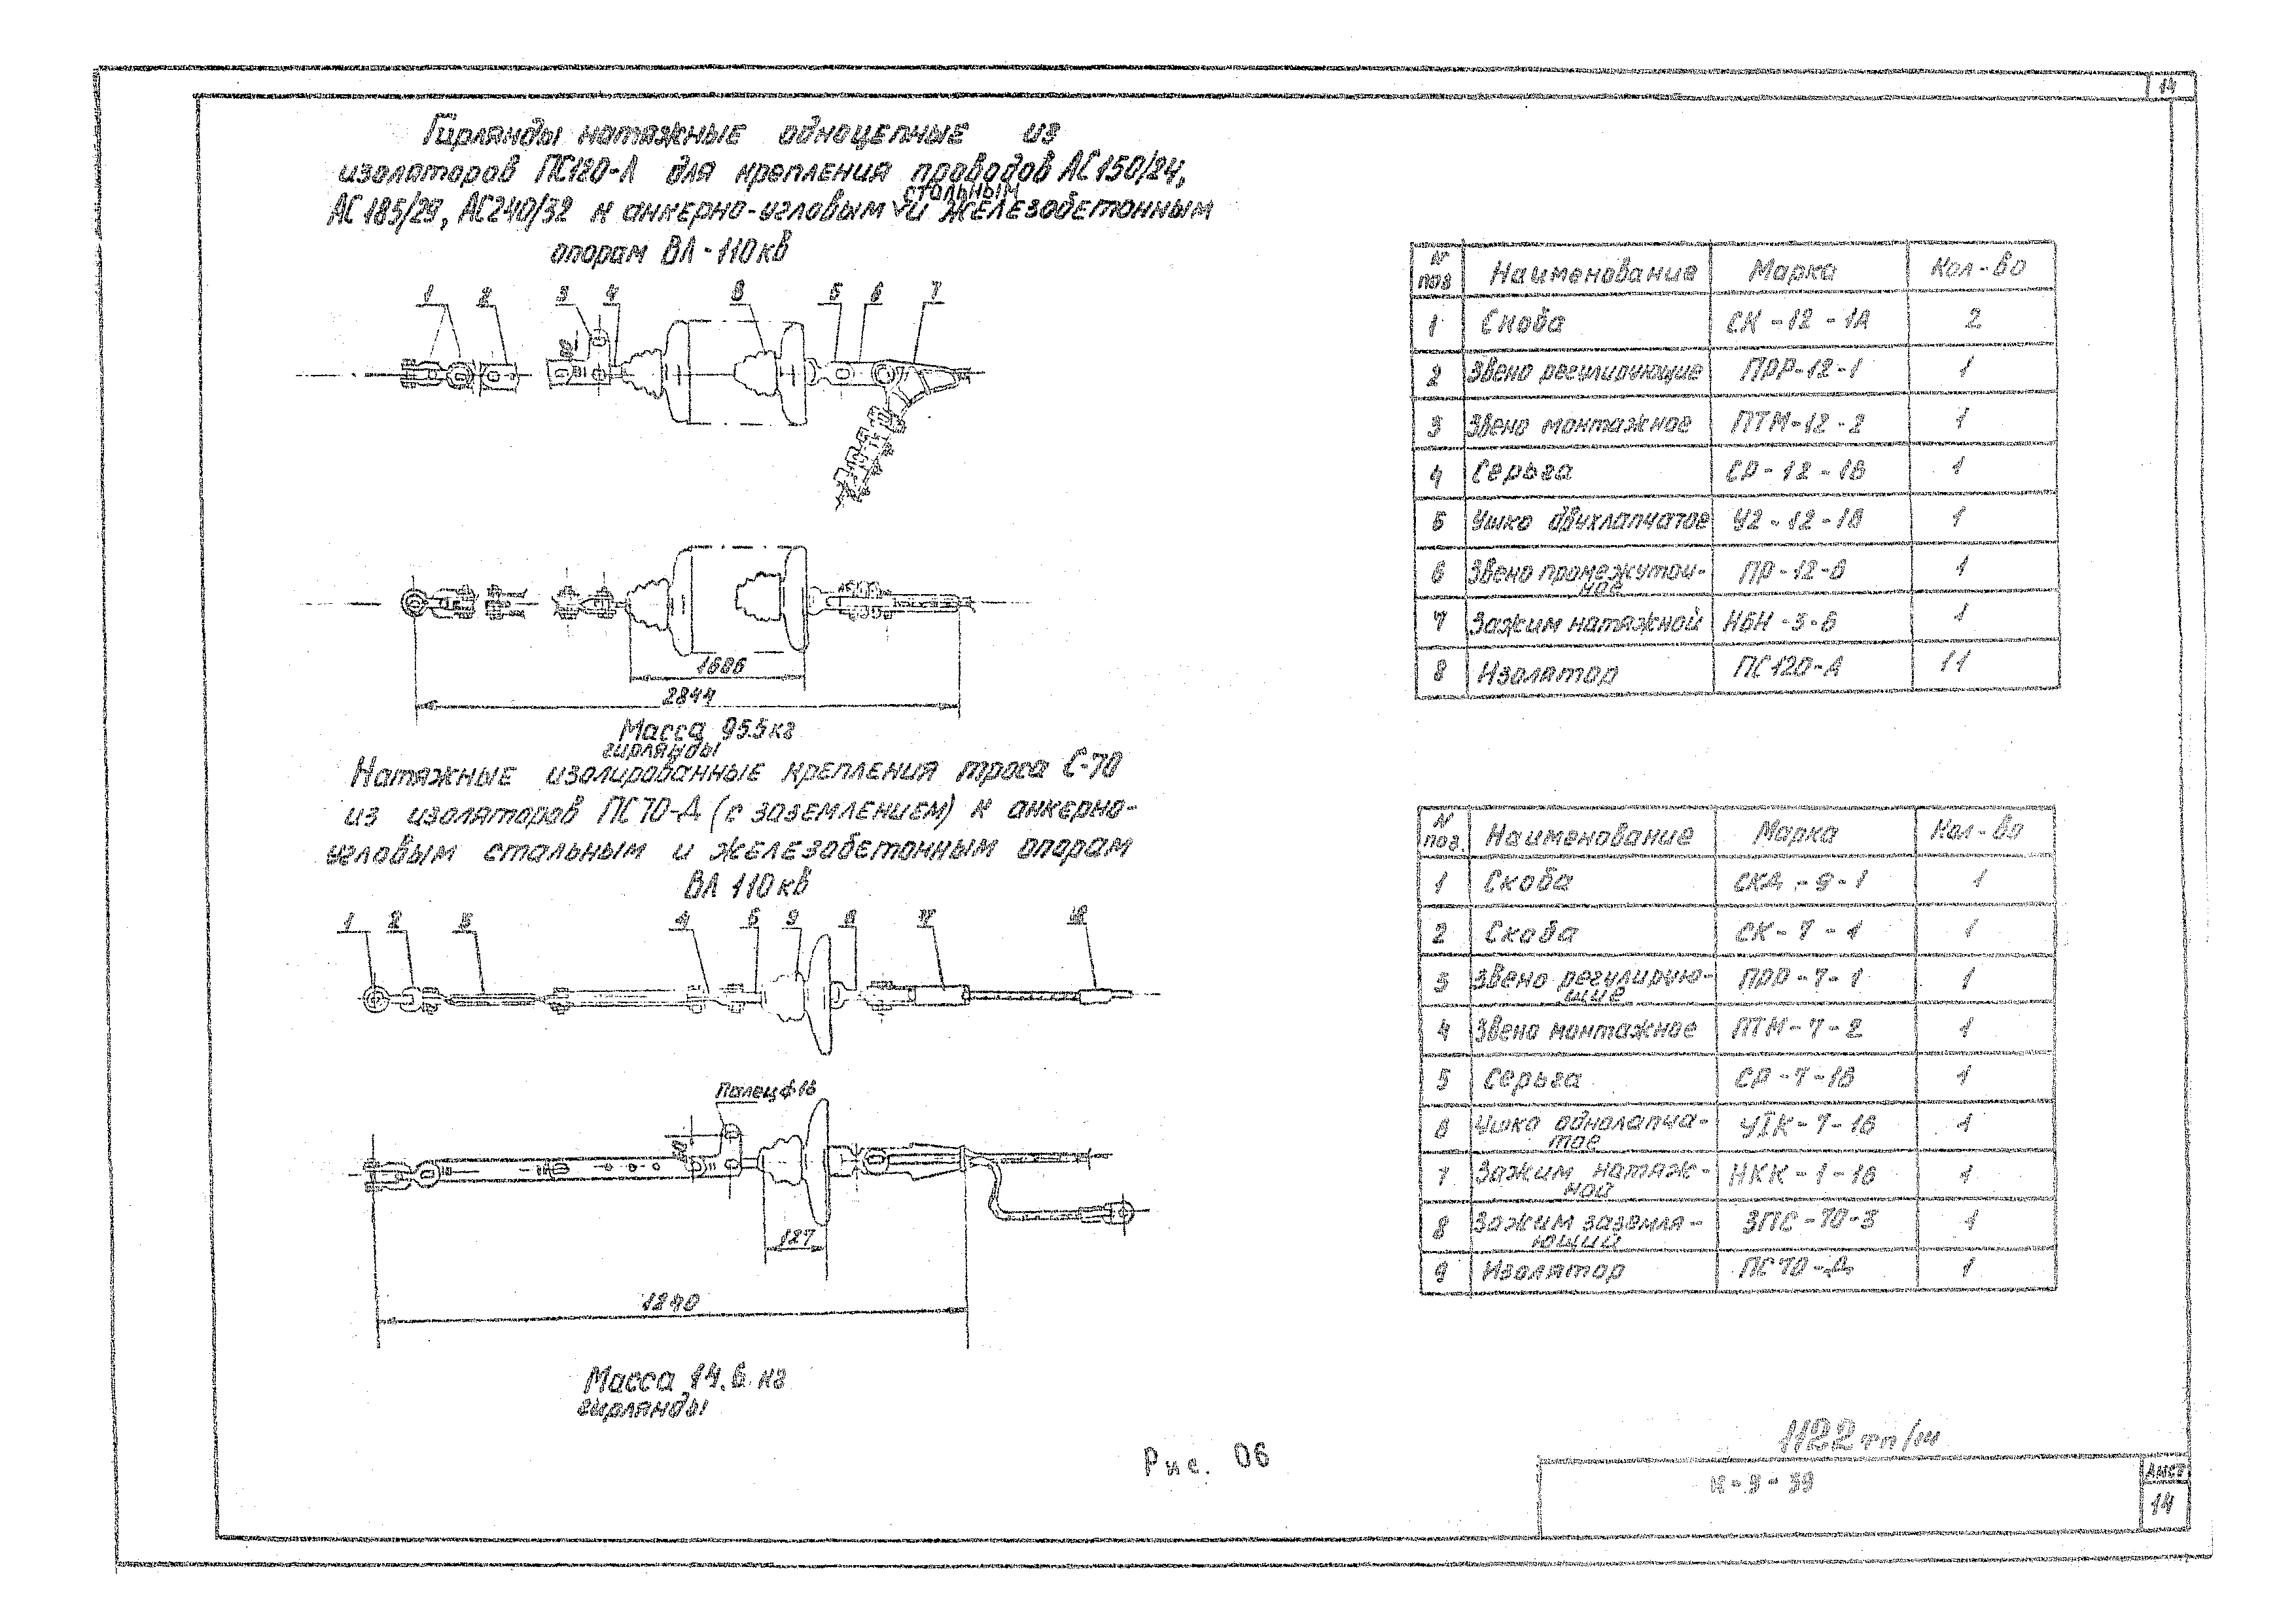 14
Гирлянды натяжные одноцепные из
изоляторов ПС120-А для крепления проводов АС150/24,
стальным
АС185/29, АС240/32 к анкерно-угловым и железобетонным
опорам ВЛ-110кв
1 2 3 4 8 5 6 7
80
1686
2844
Масса 95.5кг
гирлянды
N поз Наименование Марка Кол-во
1 Скоба СК-12-1А 2
2 Звено регулирующие ПРР-12-1 1
3 Звено монтажное ПТМ-12-2 1
4 Серьга СР-12-16 1
5 Ушко двухлапчатое У2-12-16 1
6 Звено промежуточ-
ное ПР-12-6 1
7 Зажим натяжной НБН-3-6 1
8 Изолятор ПС120-А 11
Натяжные изолированные крепления троса С-70
из изоляторов ПС70-Д (с заземлением) к анкерно-
угловым стальным и железобетонным опорам
ВЛ 110кв
1 2 3 4 5 9 6 7
Палец ф16
127
1240
Масса 14.6 кг
гирлянды
N поз. Наименование Марка Кол-во
1 Скоба СКД-9-1 1
2 Скоба СК-7-1 1
3 Звено регулирую-
щие ПРР-7-1 1
4 Звено монтажное ПТМ-7-2 1
5 Серьга СР-7-16 1
6 Ушко однолапча-
тое У1К-7-16 1
7 Зажим натяж-
ной НКК-1-1б 1
8 Зажим заземля-
ющий ЗПС-70-3 1
9 Изолятор ПС70-Д 1
Рис. 06
1122тп/14
К-3-39
Лист
14